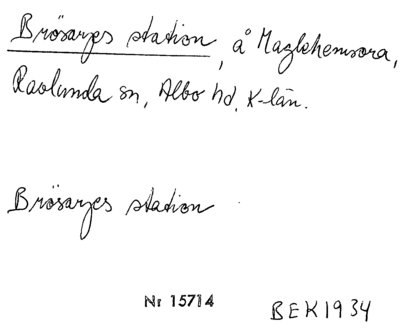 Brösarps station, å Maglehemsora,
Ravlunda sn, Albo hd, K-län.
Brösarps station
Nr 15714
BEK1934